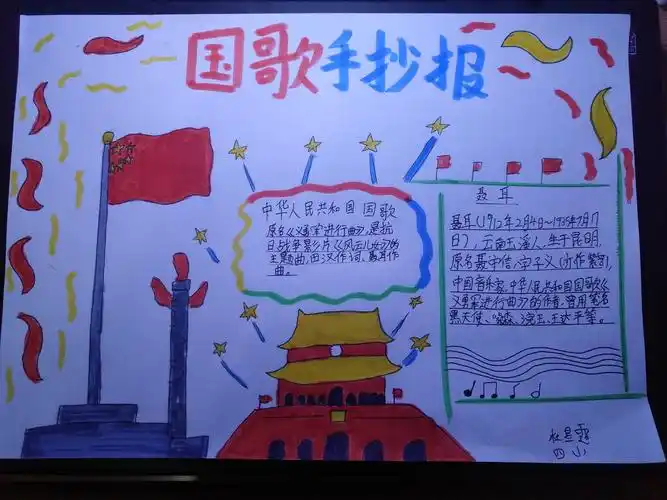 国歌手抄报
中华人民共和国国歌
原名《义勇军进行曲》,是抗
日战争影片《风云儿女》的
主题曲,田汉作词、聂耳作
曲。
聂耳
聂耳(1912年2月14日~1935年7月17
日),云南玉溪人,生于昆明,
原名聂守信,字子义(亦作紫艺),
中国音乐家,中华人民共和国国歌《
义勇军进行曲》的作者,曾用笔名
黑天使、噩森、浣玉、王达平等。
四小